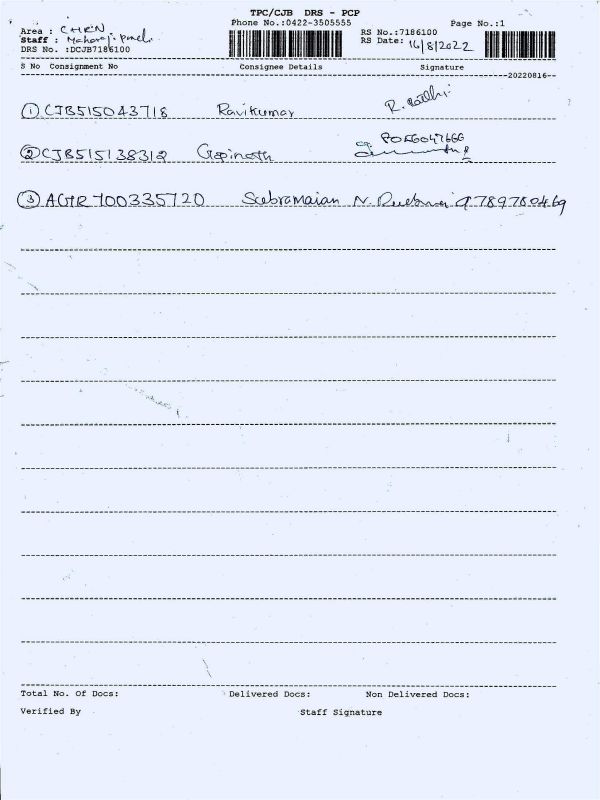 TPC/CJB DRS - PCP
Phone No.:0422-3505555 Page No.:1
Area : CHRN RS No.:7186100
Staff : Maharaji RS Date: 16/8/2022
DRS No. :DCJB7186100
S No Consignment No Consignee Details Signature
20220816
① CJB515043718 Ravikumar R.
② CJB515138312 Gopinath
③ AGTR700335720 Subramaian N. 9789780469
Total No. Of Docs: Delivered Docs: Non Delivered Docs:
Verified By Staff Signature